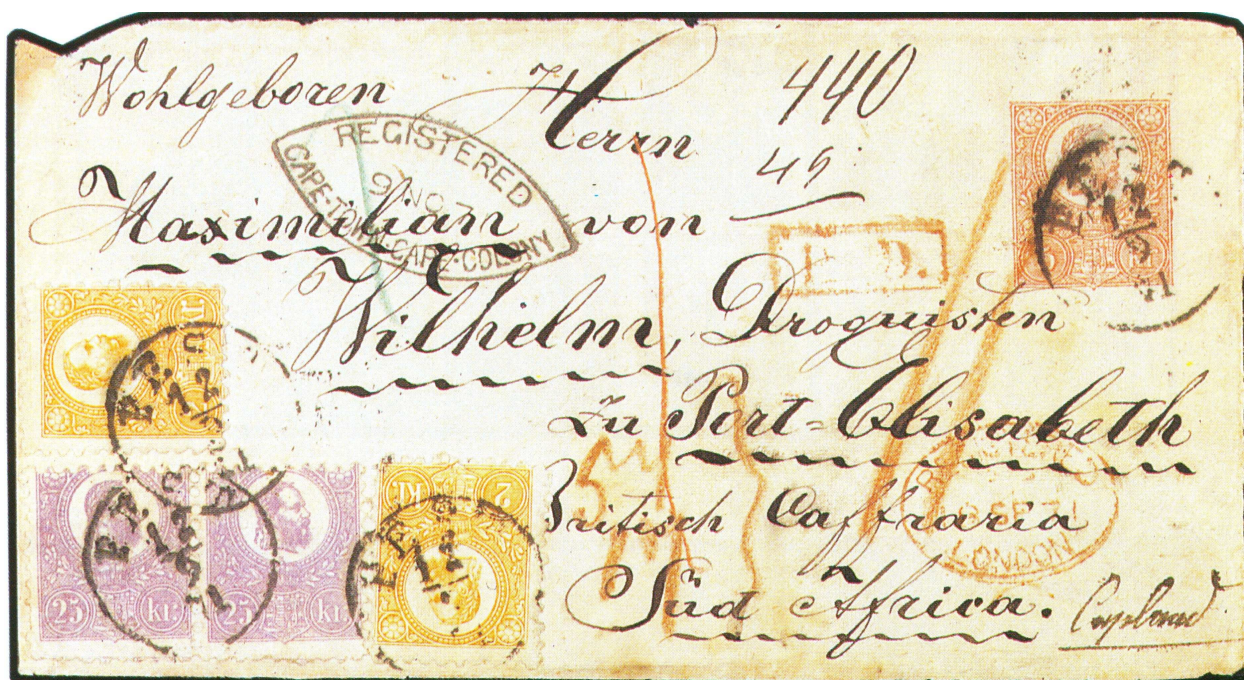 Wohlgeboren Herrn 440
49
REGISTERED
9 NO 7
CAPE-TOWN-CAPE-COLONY
Maximilian von
P.D.
Wilhelm, Droguisten
zu Port-Elisabeth
Britisch Caffraria
Süd Africa. Capland
LONDON
2 KR
25 kr. 25 kr.